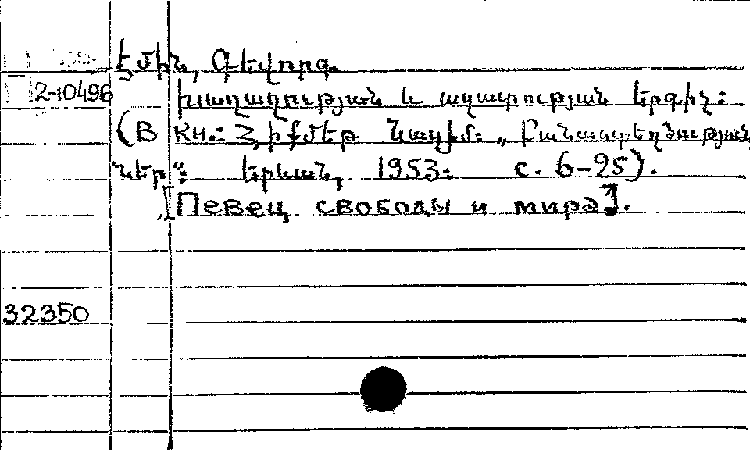 Էմին, Գևորգ.
2-10496
Խաղաղության և ազատության երգիչ:
(В кн.: Հիքմեթ Նազիմ. „Բանաստեղծություն-
ներ“: Երևան, 1953. с. 6-25).
[Певец свободы и мира].
32350